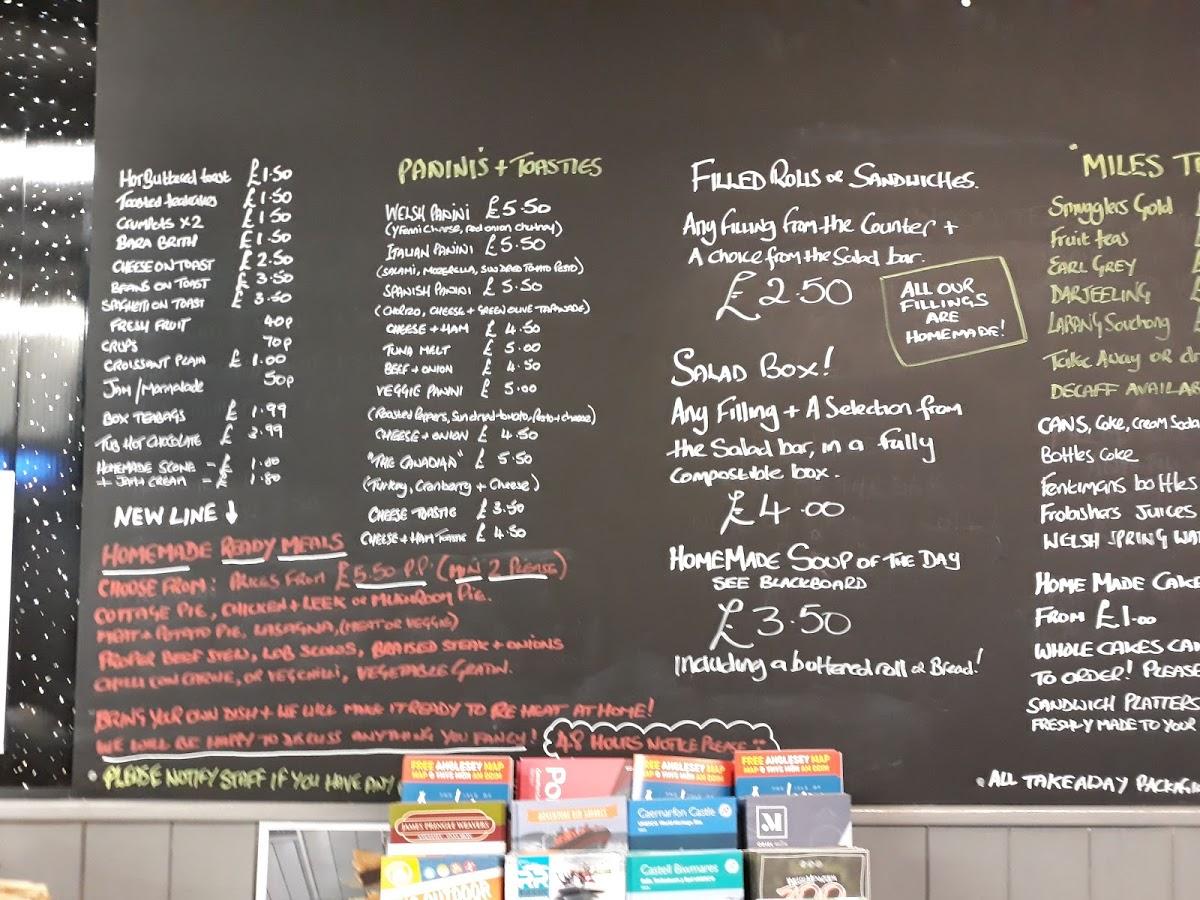 Hot Buttered toast £1.50
Toasted teacakes £1.50
Crumpets x2 £1.50
BARA BRITH £1.50
CHEESE ON TOAST £2.50
BEANS ON TOAST £3.50
SPAGHETTI ON TOAST £3.50
FRESH FRUIT 40p
CRISPS 70p
CROISSANT PLAIN £1.00
JAM/Marmalade 50p
BOX TEABAGS £1.99
TUB HOT CHOCOLATE £
HOMEMADE SCONE - £
+ JAM + CREAM - £ 1.80
NEW LINE ↓
HOMEMADE READY MEALS
CHOOSE FROM: PRICES FROM £5.50 P.P. (MIN 2 PLEASE)
COTTAGE PIE, CHICKEN + LEEK or MUSHROOM PIE.
MEAT + POTATO PIE, LASAGNA, (MEAT OR VEGGIE)
PROPER BEEF STEW, LOB SCOWS, BRAISED STEAK + ONIONS
CHILLI CON CARNE, OR VEG CHILLI, VEGETABLE GRATIN.
BRING YOUR OWN DISH + WE WILL MAKE IT READY TO RE HEAT AT HOME!
WE WILL BE HAPPY TO DISCUSS ANYTHING YOU FANCY!
48 HOURS NOTICE PLEASE
• PLEASE NOTIFY STAFF IF YOU HAVE ANY
PANINI'S + TOASTIES
WELSH PANINI £5.50
(Y Fenni Cheese, red onion chutney)
ITALIAN PANINI £5.50
(SALAMI, MOZERELLA, SUNDRIED TOMATO PESTO)
SPANISH PANINI £5.50
(CHORIZO, CHEESE + GREEN OLIVE TAPANADE)
CHEESE + HAM £4.50
TUNA MELT £5.00
BEEF + ONION £4.50
VEGGIE PANINI £5.00
(Roasted Peppers, Sundried tomato, Pesto + cheese)
CHEESE + ONION £4.50
"THE CANADIAN" £5.50
(Turkey, Cranberry + Cheese)
CHEESE TOASTIE £3.50
CHEESE + HAM Toastie £4.50
FILLED ROLLS or SANDWICHES.
Any filling from the Counter +
A choice from the Salad bar.
£2.50
ALL OUR
FILLINGS
ARE
HOMEMADE!
SALAD BOX!
Any Filling + A Selection from
the Salad bar, in a fully
Compostible box.
£4.00
HOMEMADE SOUP OF THE DAY
SEE BLACKBOARD
£3.50
Including a buttered roll or Bread!
MILES T
Smugglers Gold
Fruit teas
EARL GREY
DARJEELING
LAPANG Souchong
Take Away OR
DECAFF AVAILA
CANS, Coke, Cream Soda
Bottles Coke
Fentimans bottles
Frobishers Juices
WELSH SPRING WAT
HOME MADE CAKE
FROM £1.00
WHOLE CAKES CAN
TO ORDER! PLEASE
SANDWICH PLATTERS
FRESHLY MADE TO YOUR
• ALL TAKEAWAY PACKAGI
FREE ANGLESEY MAP
MAP O YNYS MÔN AM DDIM
Po
FREE ANGLESEY MAP
MAP O YNYS MÔN AM DDIM
FREE ANGLESEY MAP
MAP O YNYS MÔN AM DDIM
JAMES PRINGLE WEAVERS
Caernarfon Castle
M
OUTDOOR
Castell Biwmares